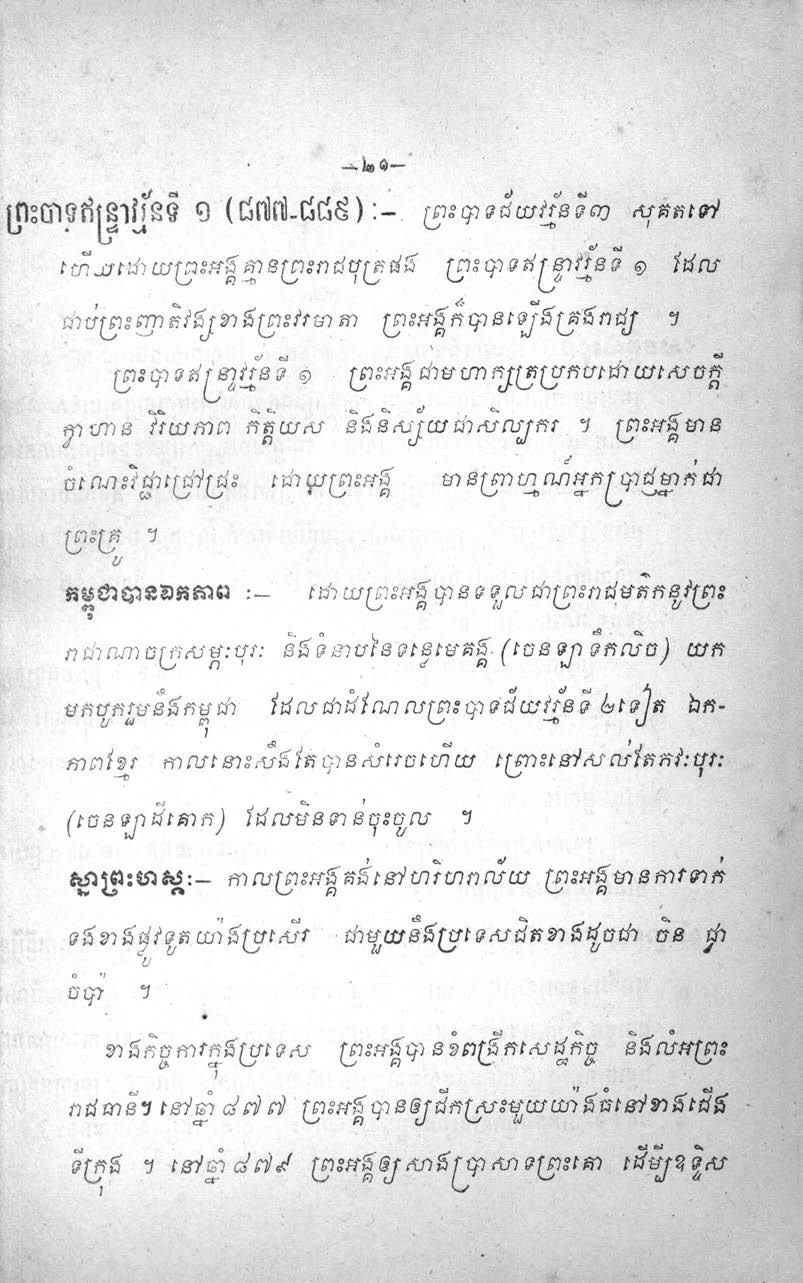 —២១—
ព្រះបាទឥន្ទ្រាវរ្ម័នទី ១ (៨៧៧-៨៨៩) :— ព្រះបាទជ័យវរ្ម័នទី៣ សុគតទៅ
ហើយដោយព្រះអង្គគ្មានព្រះរាជបុត្រផង ព្រះបាទឥន្ទ្រាវរ្ម័នទី ១ ដែល
ជាប់ព្រះញាតិវង្សខាងព្រះវរមាតា ព្រះអង្គក៏បានឡើងគ្រងរាជ្យ ។
ព្រះបាទឥន្ទ្រាវរ្ម័នទី ១ ព្រះអង្គជាមហាក្សត្រប្រកបដោយសេចក្តី
ក្លាហាន វិរិយភាព កិត្តិយស និងនិស្ស័យជាសិល្បករ ។ ព្រះអង្គមាន
ចំណេះវិជ្ជាជ្រៅជ្រះ ដោយព្រះអង្គ មានព្រាហ្មណ៍អ្នកប្រាជ្ញម្នាក់ជា
ព្រះគ្រូ ។
កម្ពុជាបានឯកភាព :— ដោយព្រះអង្គបានទទួលជាព្រះរាជមតិកនូវព្រះ
រាជាណាចក្រសម្ភៈបុរៈ និងទំនាបនៃទន្លេមេគង្គ (ចេនឡាទឹកលិច) យក
មកបូករួមនឹងកម្ពុជា ដែលជាដំណែលព្រះបាទជ័យវរ្ម័នទី ២ទៀត ឯក-
ភាពខ្មែរ កាលនោះសឹងតែបានសំរេចហើយ ព្រោះនៅសល់តែភវៈបុរៈ
(ចេនឡាដីគោក) ដែលមិនទាន់ចុះចូល ។
ស្នាព្រះហស្តៈ— កាលព្រះអង្គគង់នៅហរិហរាល័យ ព្រះអង្គមានការទាក់
ទងខាងផ្លូវទូតយ៉ាងប្រសើរ ជាមួយនឹងប្រទេសជិតខាងដូចជា ចិន ជ្វា
ចំប៉ា ។
ខាងកិច្ចការក្នុងប្រទេស ព្រះអង្គបានខំពង្រីកសេដ្ឋកិច្ច និងលំអព្រះ
រាជធានី។ នៅឆ្នាំ ៨៧៧ ព្រះអង្គបានឲ្យជីកស្រះមួយយ៉ាងធំនៅខាងជើង
ទីក្រុង ។ នៅឆ្នាំ ៨៧៩ ព្រះអង្គឲ្យសាងប្រាសាទព្រះគោ ដើម្បីឧទ្ទិស